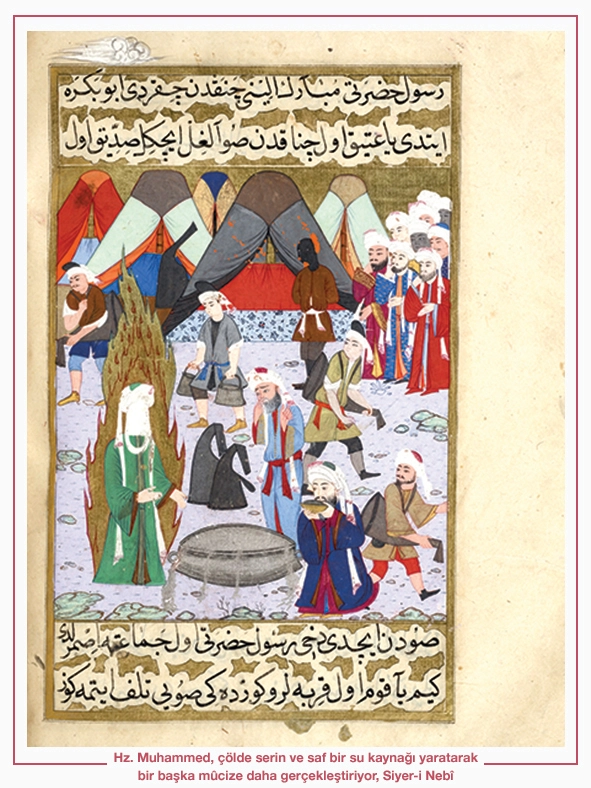 رسول حضرتی مبارك الینی چنقدن چقردی ابو بکره
ایتدی یا عتیق اول چناقدن صو آلغل ایچكل صدیق اول
صودن ایچدی دخی رسول حضرتی اول جماعته اصمرلدی
کیم یا قوم اول قربه لرو کوزده کی صویی تلف ایتمه کوز
Hz. Muhammed, çölde serin ve saf bir su kaynağı yaratarak
bir başka mûcize daha gerçekleştiriyor, Siyer-i Nebî